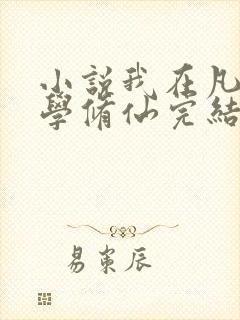 小説我在凡
學脩仙完結
易東辰